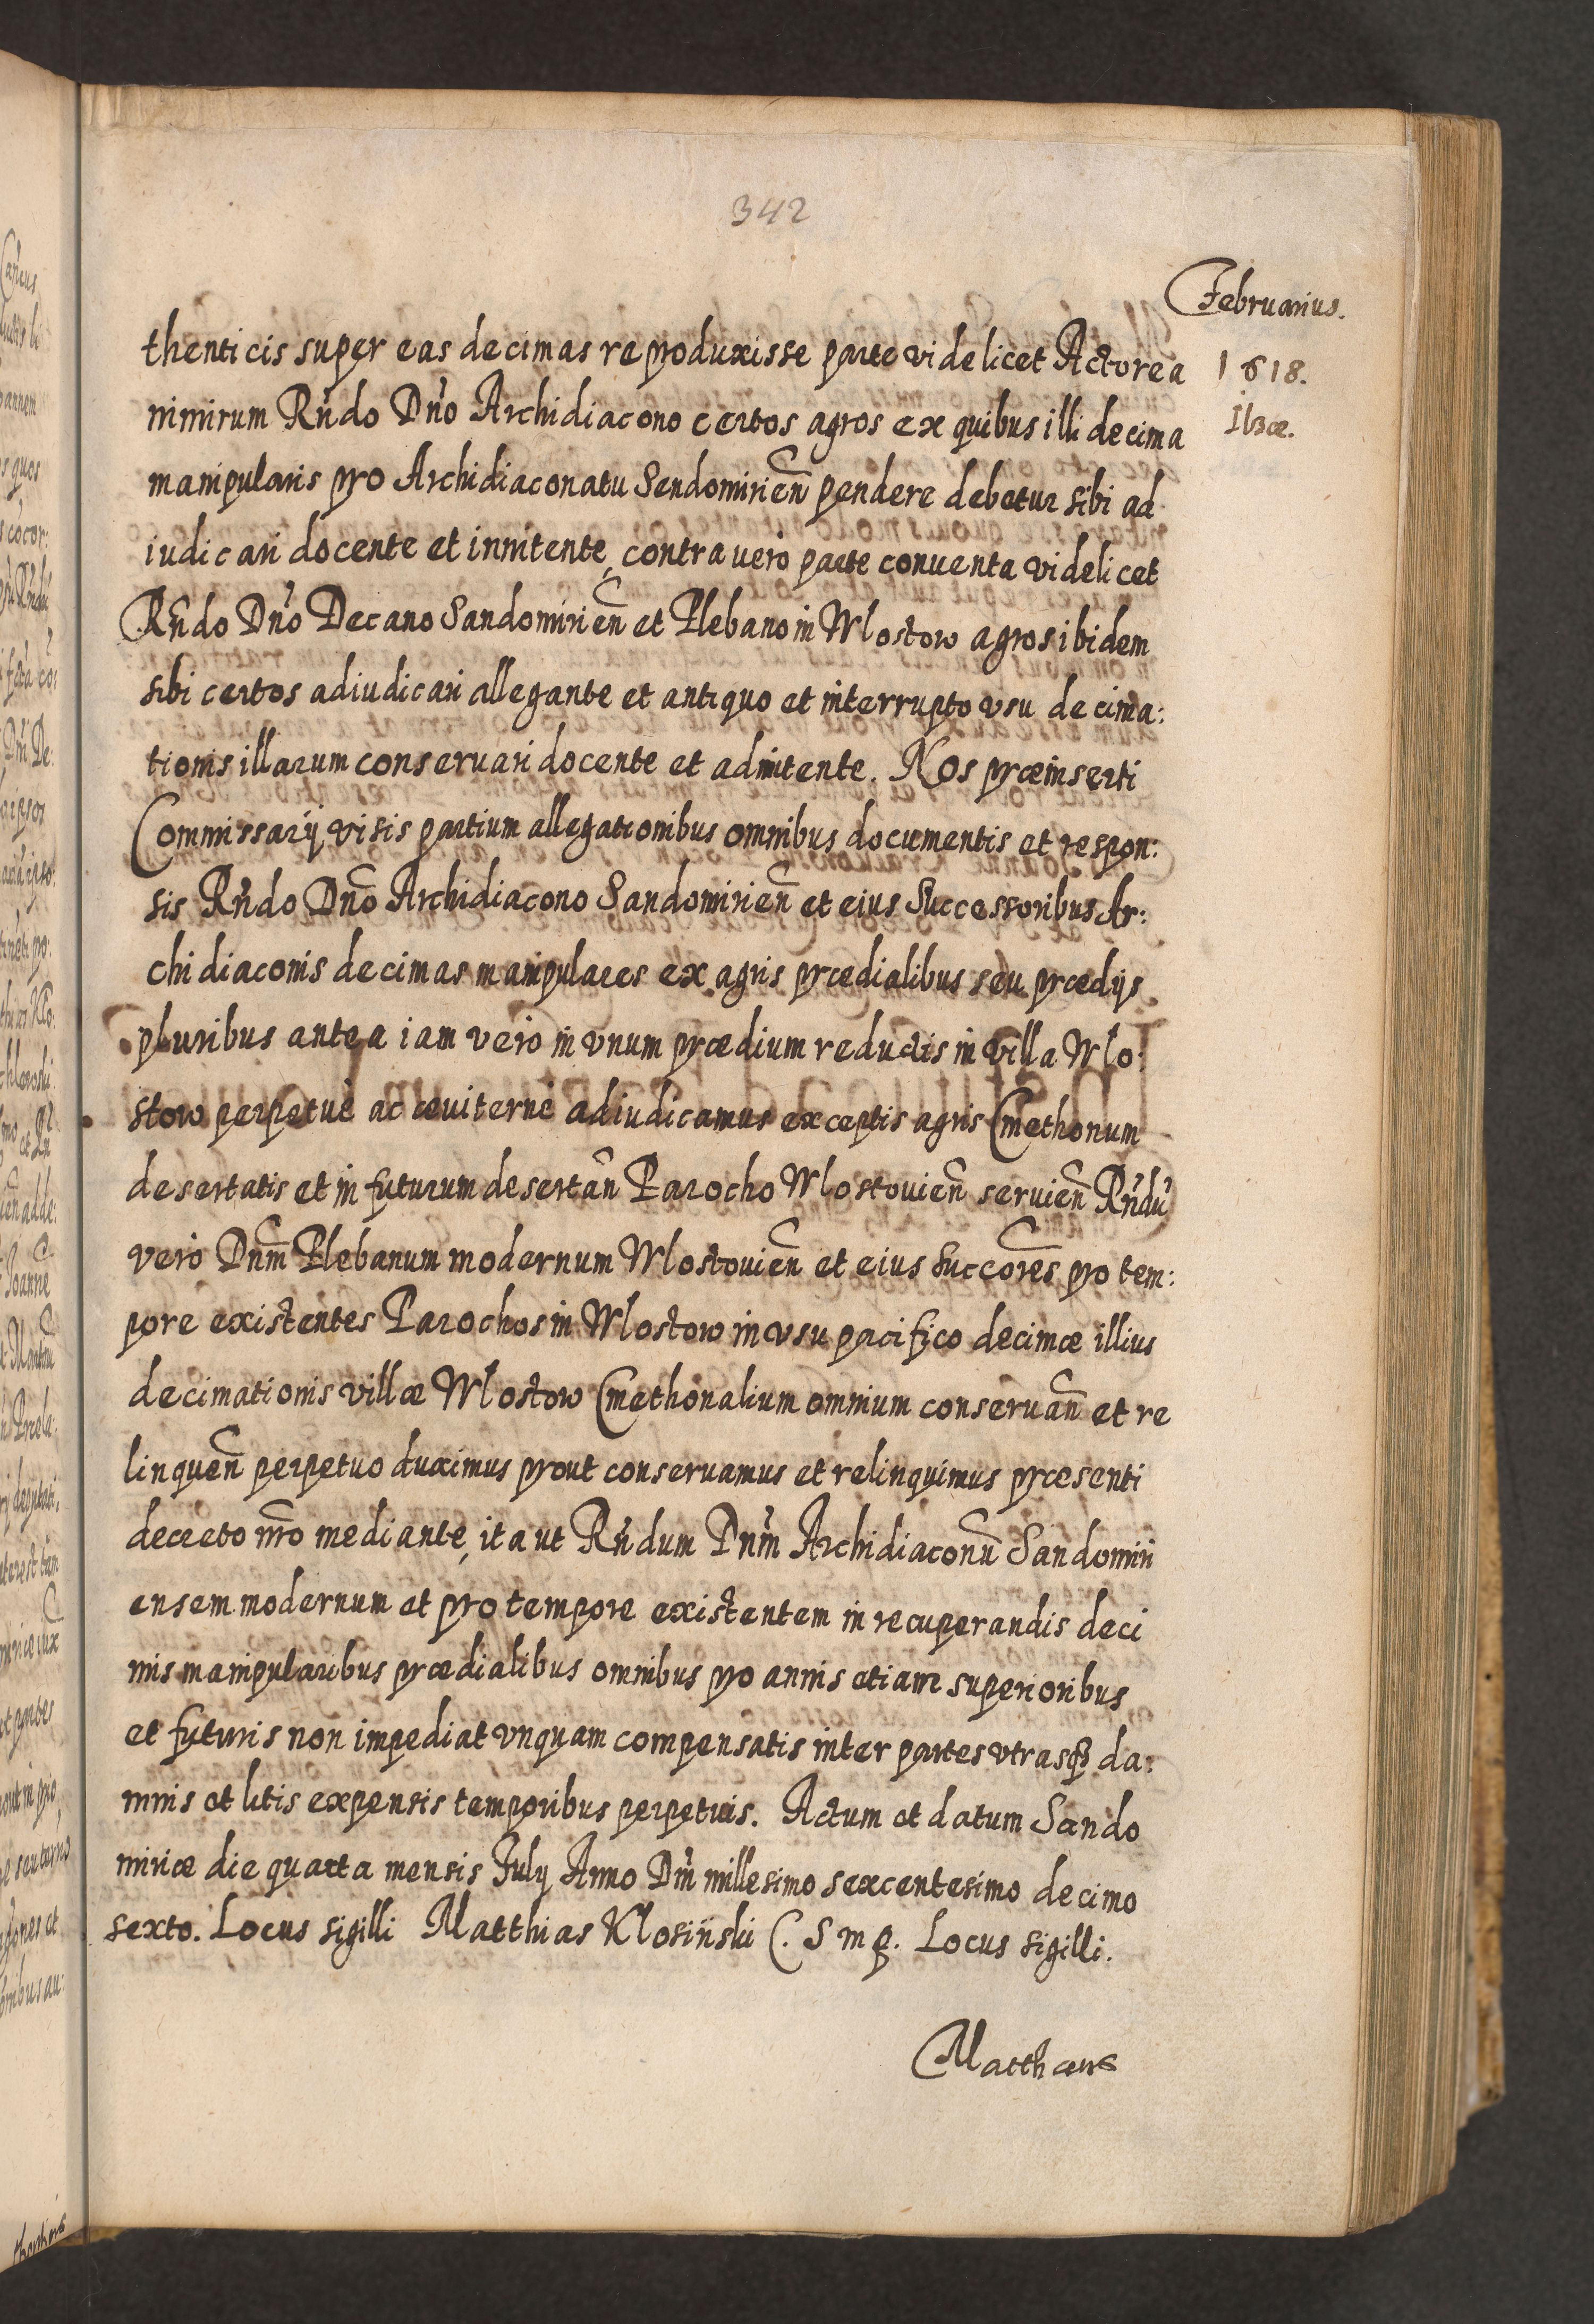 342
Februarius.
1618.
Ilzæ.
thenticis super eas decimas reproduxisse parte videlicet Actorea
nimirum Rńdo Dńo Archidiacono certos agros ex quibus illi decima
manipularis pro Archidiaconatu Sendomirien̄ pendere debetur sibi ad
iudicari docente et innitente, contra vero parte conuenta videlicet
Rn̄do Dńo Decano Sandomirien̄ et Plebano in Wlostow agros ibidem
sibi certos adiudicari allegante et antiquo et interrupto vsu decima:
tionis illarum conseruari docente et adnitente. Nos præinserti
Commissarij visis partium allegationibus omnibus documentis et respon:
sis Rńdo Dn̄o Archidiacono Sandomirien̄ et eius Successoribus Ar:
chidiaconis decimas manipulares ex agris prædialibus seu prædijs
pluribus antea iam vero in vnum prædium reductis in villa Wlo:
stow perpetuè ac æuiternè adiudicamus exceptis agris Cmethonum
desertatis et in futurum desertan̄ Parocho Wlostouien̄ seruien̄ Rńdu'
verò Dnm̄ Plebanum modernum Wlostouien̄ et eius succōres pro tem:
pore existentes Parochos in Wlostow in vsu pacifico decimæ illius
decimationis villæ Wlostow Cmethonalium omnium conseruan̄ et re
linquen̄ perpetuo duximus prout conseruamus et relinquimus præsenti
decreto nr̄o mediante, ita ut Rńdum Dnm̄ Archidiaconū Sandomiri
ensem modernum et pro tempore existentem in recuperandis deci
mis manipularibus prædialibus omnibus pro annis etiam superioribus
et futuris non impediat vnquam compensatis inter partes vtrasqȝ da:
mnis et litis expensis temporibus perpetuis. Actum et datum Sando
miriæ die quarta mensis July Anno Dńi millesimo sexcentesimo decimo
sexto. Locus sigilli Matthias Klosiński C. S m p. Locus sigilli.
Matthæus